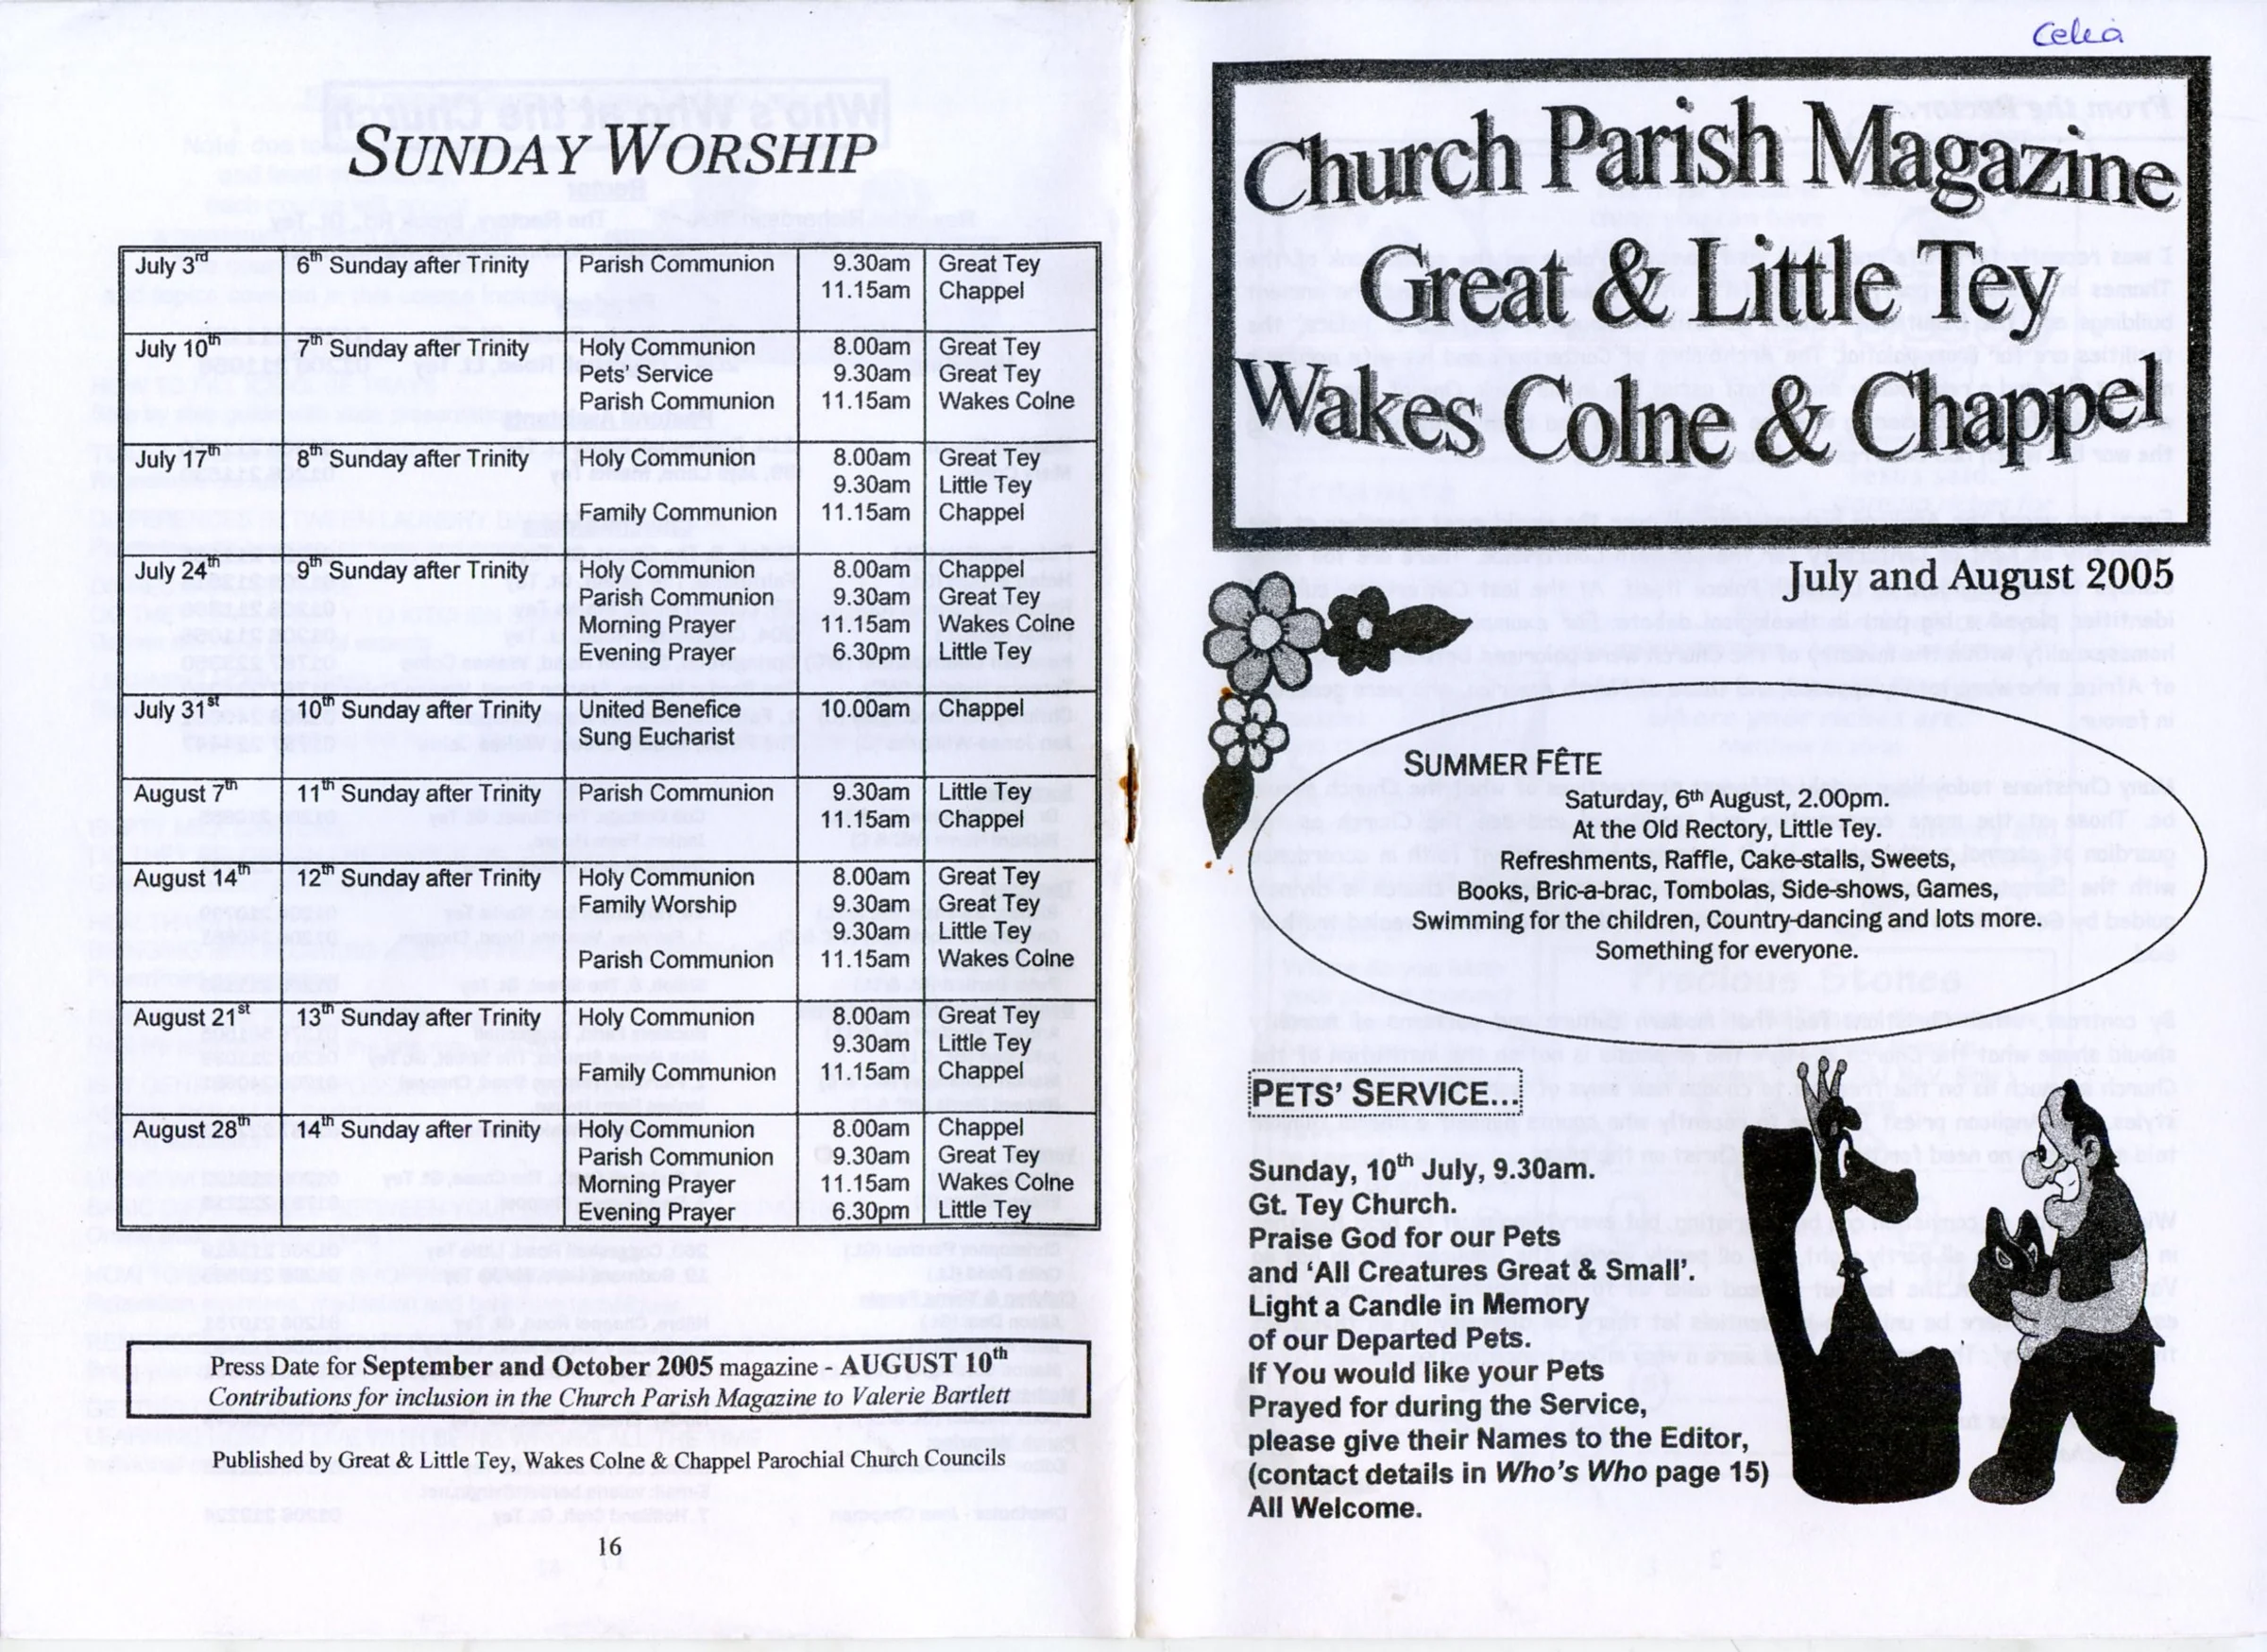 SUNDAY WORSHIP
July 3rd 6th Sunday after Trinity Parish Communion 9.30am Great Tey
11.15am Chappel
July 10th 7th Sunday after Trinity Holy Communion 8.00am Great Tey
Pets' Service 9.30am Great Tey
Parish Communion 11.15am Wakes Colne
July 17th 8th Sunday after Trinity Holy Communion 8.00am Great Tey
9.30am Little Tey
Family Communion 11.15am Chappel
July 24th 9th Sunday after Trinity Holy Communion 8.00am Chappel
Parish Communion 9.30am Great Tey
Morning Prayer 11.15am Wakes Colne
Evening Prayer 6.30pm Little Tey
July 31st 10th Sunday after Trinity United Benefice 10.00am Chappel
Sung Eucharist
August 7th 11th Sunday after Trinity Parish Communion 9.30am Little Tey
11.15am Chappel
August 14th 12th Sunday after Trinity Holy Communion 8.00am Great Tey
Family Worship 9.30am Great Tey
9.30am Little Tey
Parish Communion 11.15am Wakes Colne
August 21st 13th Sunday after Trinity Holy Communion 8.00am Great Tey
9.30am Little Tey
Family Communion 11.15am Chappel
August 28th 14th Sunday after Trinity Holy Communion 8.00am Chappel
Parish Communion 9.30am Great Tey
Morning Prayer 11.15am Wakes Colne
Evening Prayer 6.30pm Little Tey
Press Date for September and October 2005 magazine - AUGUST 10th
Contributions for inclusion in the Church Parish Magazine to Valerie Bartlett
Published by Great & Little Tey, Wakes Colne & Chappel Parochial Church Councils
16
Celia
Church Parish Magazine
Great & Little Tey
Wakes Colne & Chappel
July and August 2005
SUMMER FÊTE
Saturday, 6th August, 2.00pm.
At the Old Rectory, Little Tey.
Refreshments, Raffle, Cake-stalls, Sweets,
Books, Bric-a-brac, Tombolas, Side-shows, Games,
Swimming for the children, Country-dancing and lots more.
Something for everyone.
PETS' SERVICE...
Sunday, 10th July, 9.30am.
Gt. Tey Church.
Praise God for our Pets
and 'All Creatures Great & Small'.
Light a Candle in Memory
of our Departed Pets.
If You would like your Pets
Prayed for during the Service,
please give their Names to the Editor,
(contact details in Who's Who page 15)
All Welcome.